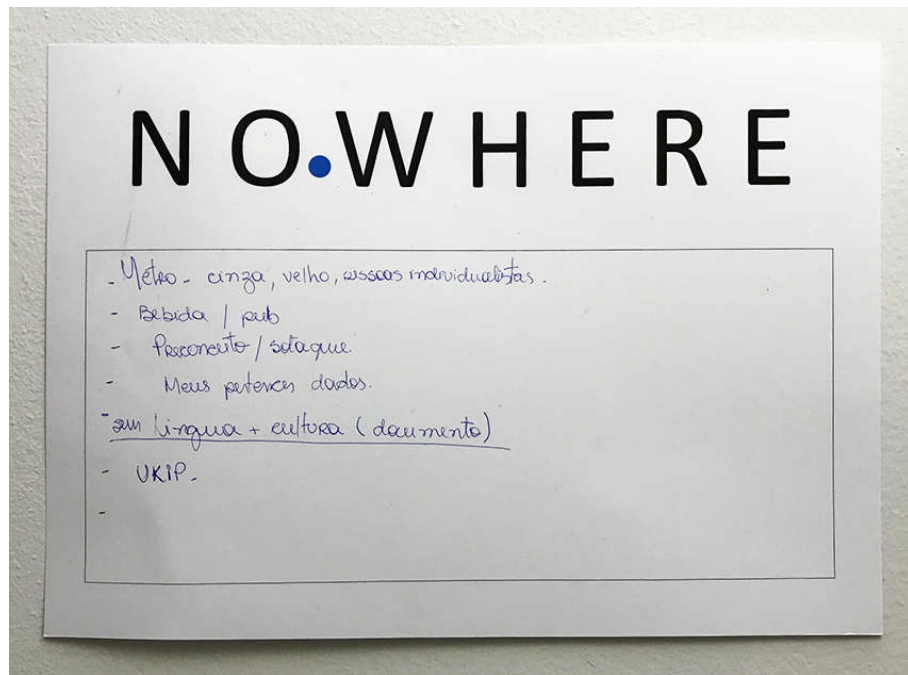 NO.WHERE
- Metro - cinza, velho, pessoas individualistas.
- Bebida / pub
- Preconceito / sotaque.
- Meus pertences dados.
- sem língua + cultura (documento)
- UKIP.
-